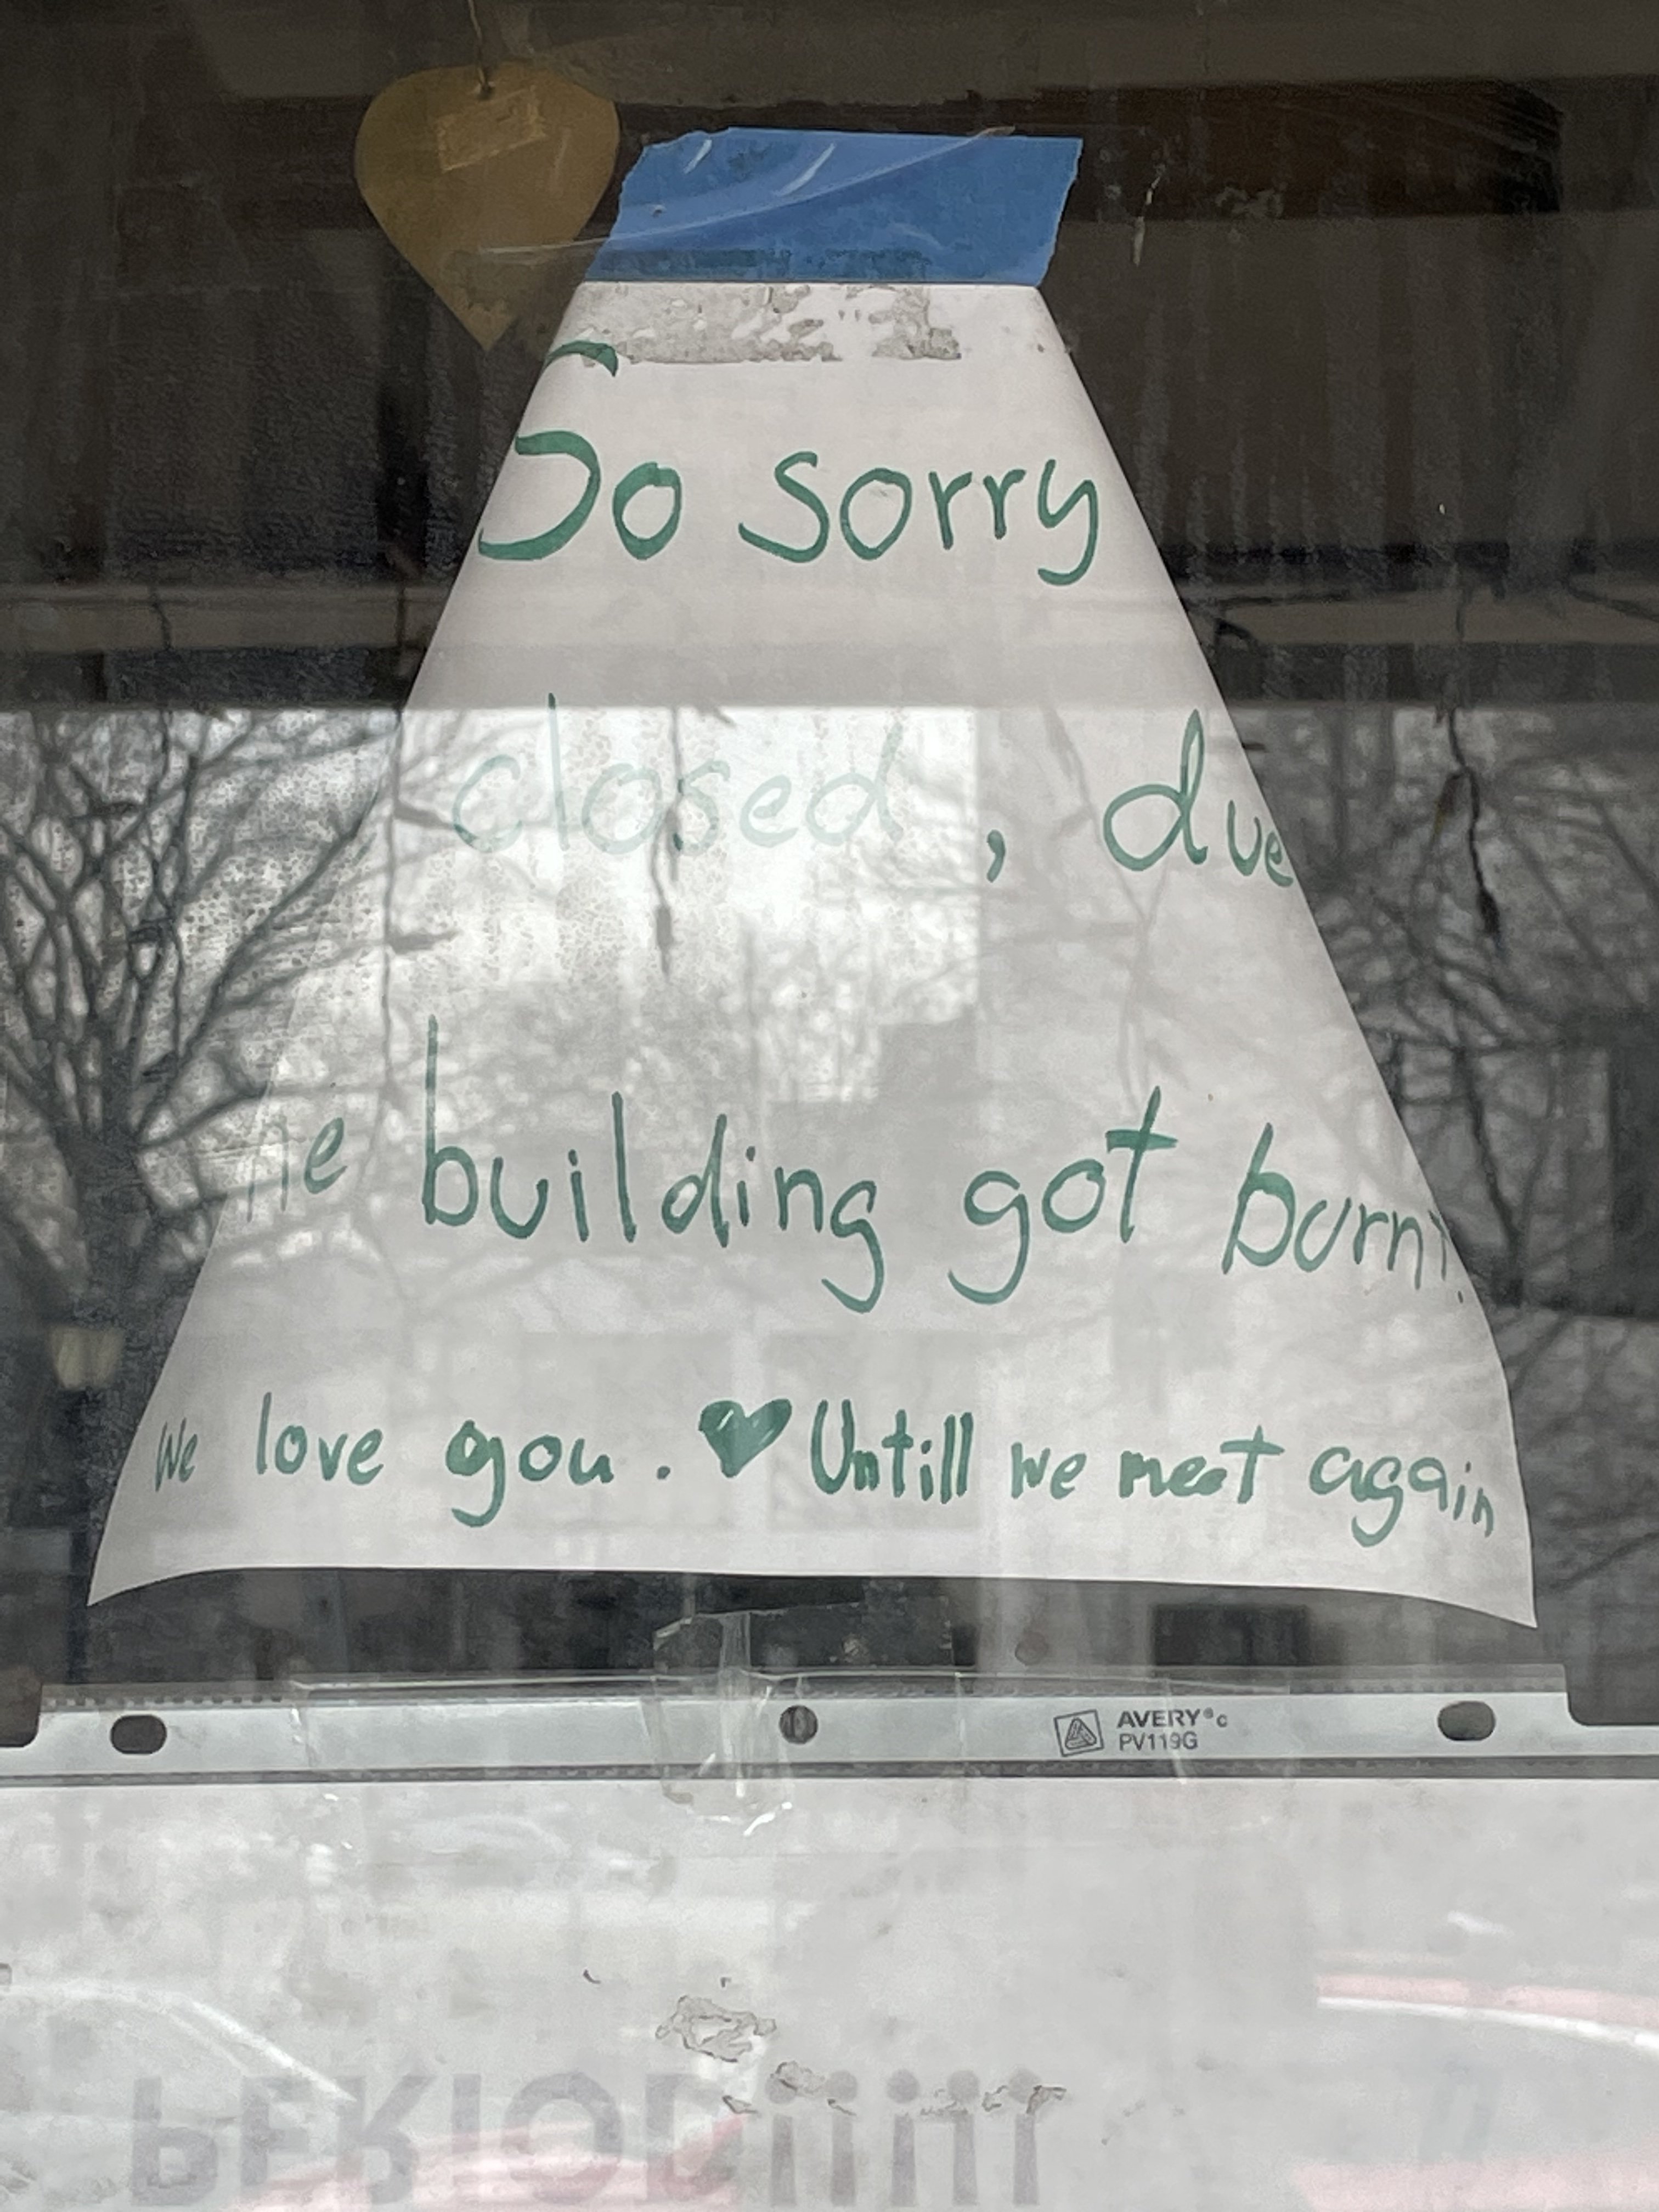 So sorry
closed, due
he building got burnt
We love you. ♥ Untill we meet again
AVERY®
PV119G
PERIOD!!!!!